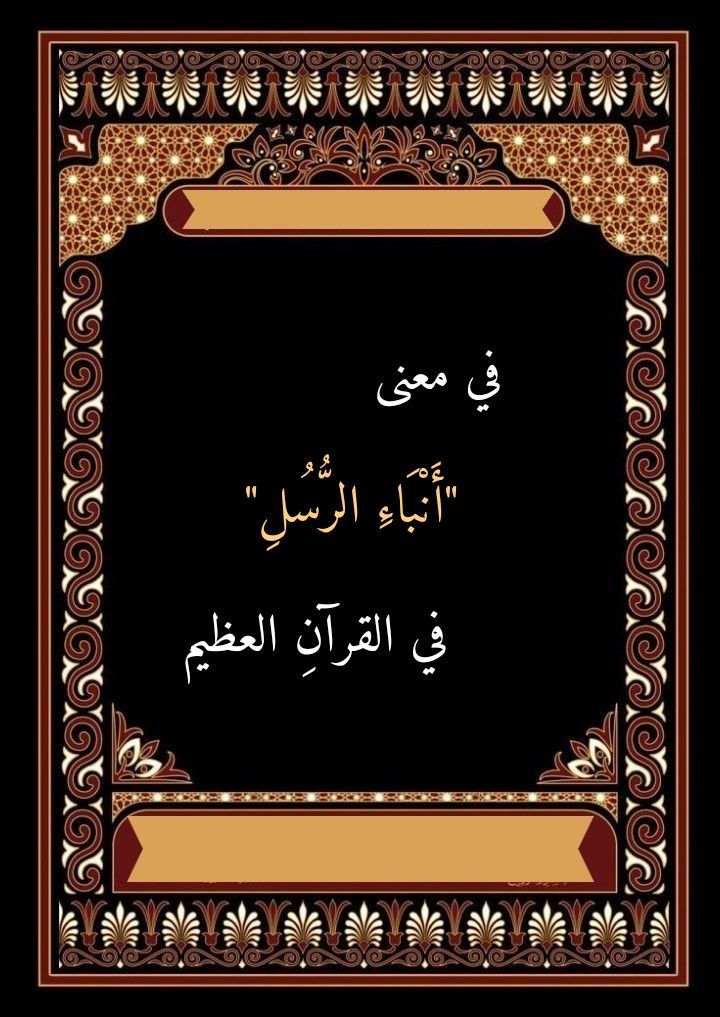 في معنى
"أَنْبَاءِ الرُّسُلِ"
في القرآنِ العظيم